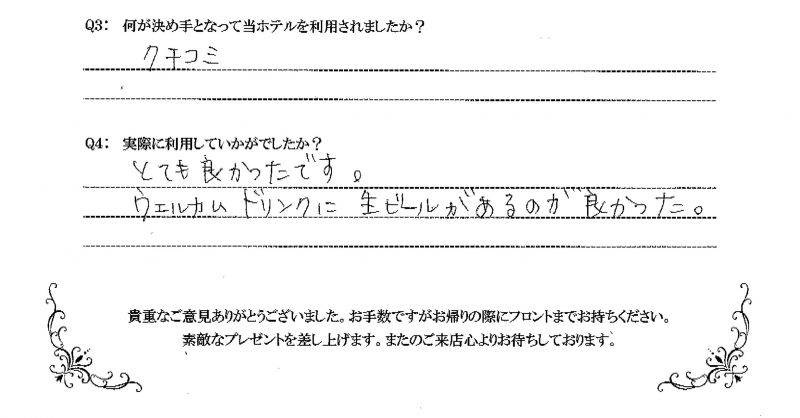 Q3: 何が決め手となって当ホテルを利用されましたか？
クチコミ
Q4: 実際に利用していかがでしたか？
とても良かったです。
ウェルカム ドリンクに 生ビールがあるのが 良かった。
貴重なご意見ありがとうございました。お手数ですがお帰りの際にフロントまでお持ちください。
素敵なプレゼントを差し上げます。またのご来店心よりお待ちしております。